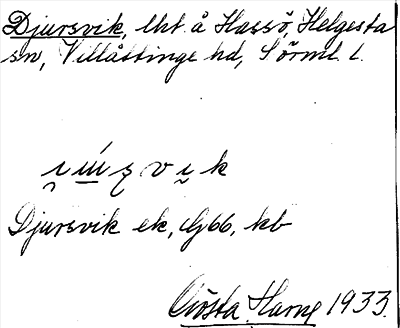 Djursvik, lht å Hassö, Helgesta
sn, Villåttinge hd, Sörml. l.
Djursvik ek, G66, kb
Gösta Harne 1933.